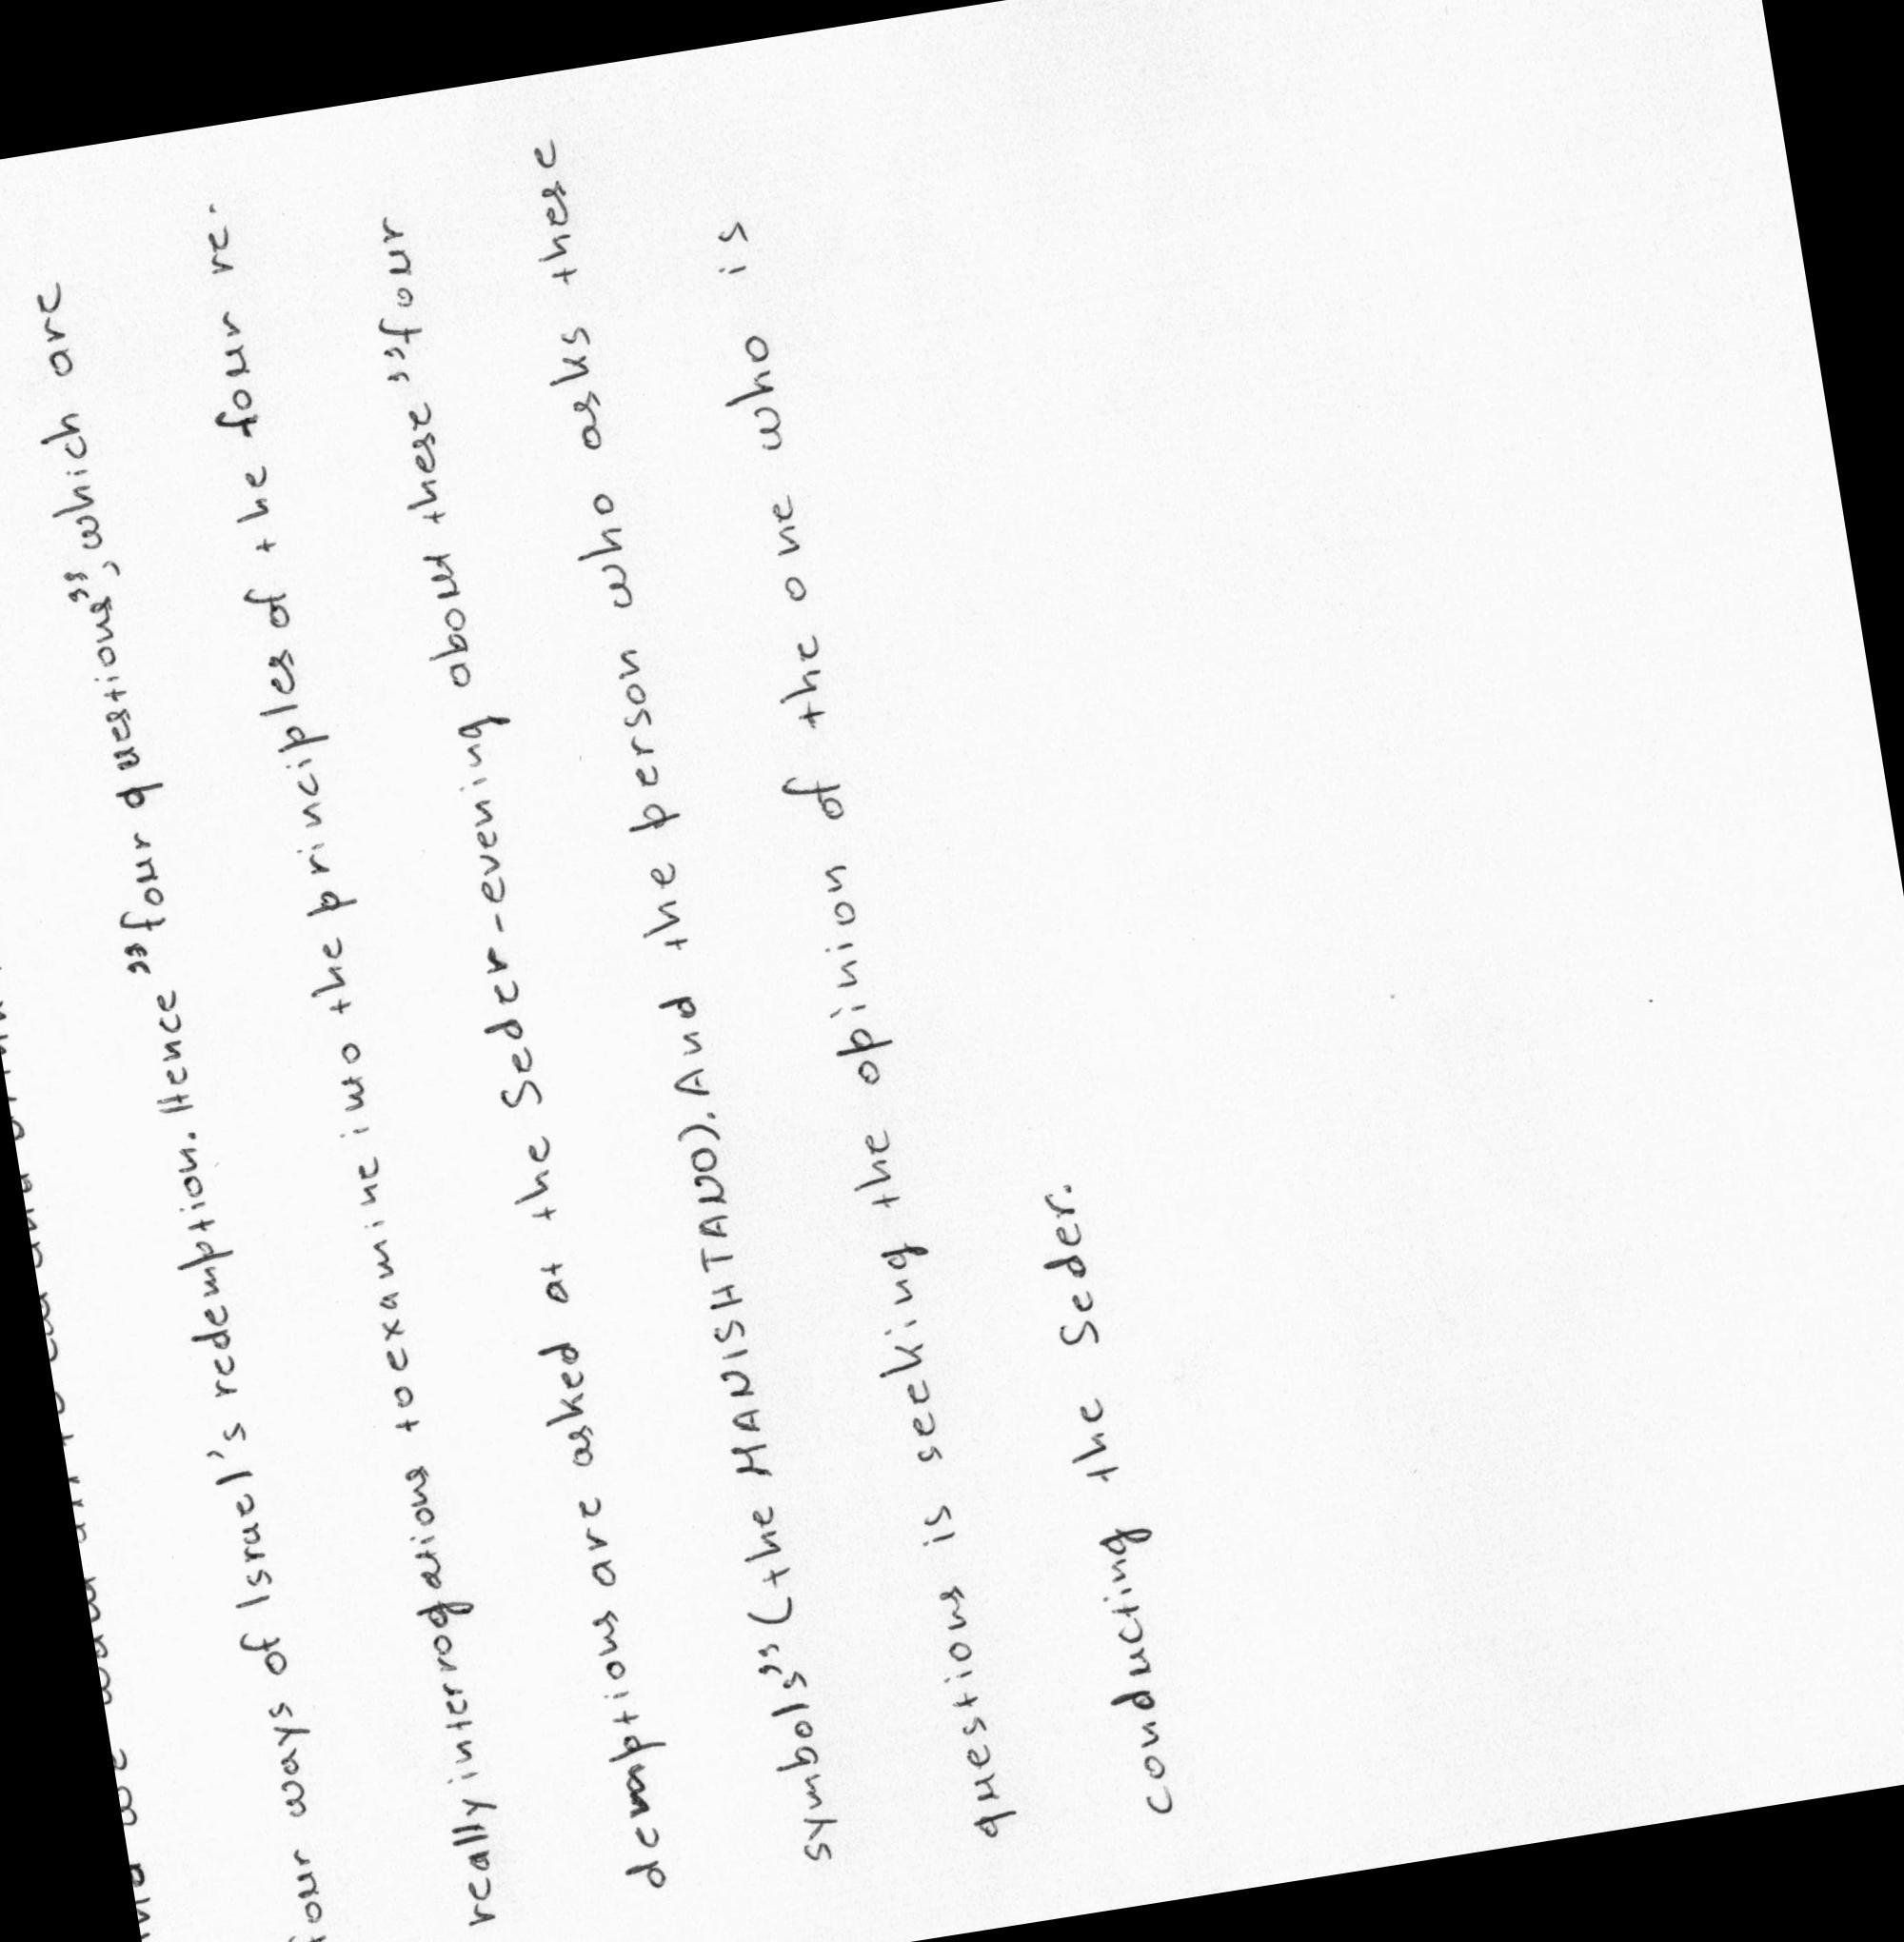 four ways of Israel's redemption. Hence "four questions", which are
really interrogations to examine into the principles of the four re-
demptions are asked at the Seder-evening about these "four
symbols" (the MANISHTANO). And the person who asks these
questions is seeking the opinion of the one who is
conducting the Seder.